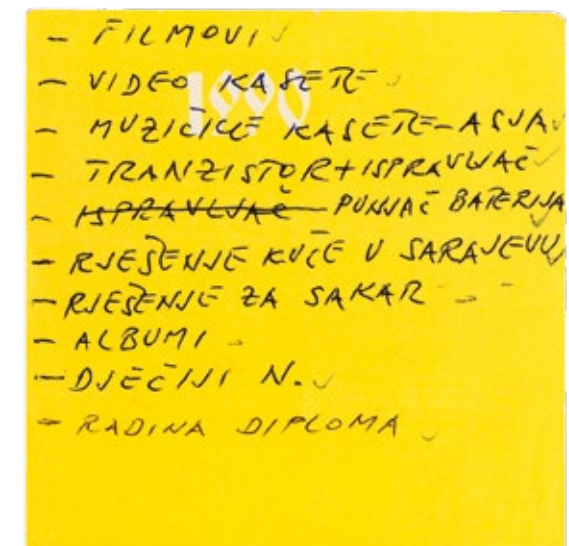 - FILMOVI
- VIDEO KASETE
1990
- MUZIČKE KASETE - ASJA
- TRANZISTOR + ISPRAVLJAČ
- ISPRAVLJAČ PUNJAČ BATERIJA
- RJEŠENJE KUĆE U SARAJEVU
- RJEŠENJE ZA SAKAR
- ALBUMI
- DJEČIJI N.
- RADINA DIPLOMA